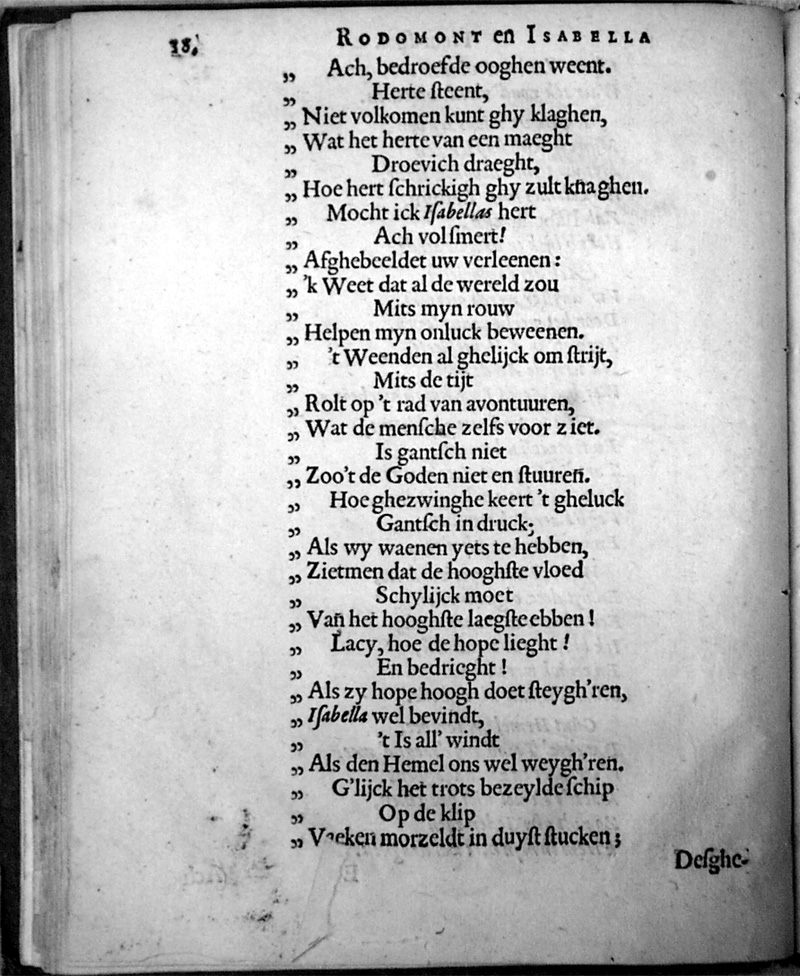 18.
RODOMONT en ISABELLA
„ Ach, bedroefde ooghen weent.
„ Herte ſteent,
„ Niet volkomen kunt ghy klaghen,
„ Wat het herte van een maeght
„ Droevich draeght,
„ Hoe hert ſchrickigh ghy zult knaghen.
„ Mocht ick Iſabellas hert
„ Ach vol ſmert!
„ Afghebeeldet uw verleenen:
„ 'k Weet dat al de wereld zou
„ Mits myn rouw
„ Helpen myn onluck beweenen.
„ 't Weenden al ghelijck om ſtrijt,
„ Mits de tijt
„ Rolt op 't rad van avontuuren,
„ Wat de menſche zelfs voor ziet.
„ Is gantſch niet
„ Zoo't de Goden niet en ſtuureñ.
„ Hoe ghezwinghe keert 't gheluck
„ Gantſch in druck;
„ Als wy waenen yets te hebben,
„ Zietmen dat de hooghſte vloed
„ Schylijck moet
„ Vañ het hooghſte laegſte ebben!
„ Lacy, hoe de hope lieght!
„ En bedrieght!
„ Als zy hope hoogh doet ſteygh'ren,
„ Iſabella wel bevindt,
„ 't Is all' windt
„ Als den Hemel ons wel weygh'ren.
„ G'lijck het trots bezeylde ſchip
„ Op de klip
„ Vaeken morzeldt in duyſt ſtucken;
Deſghe-